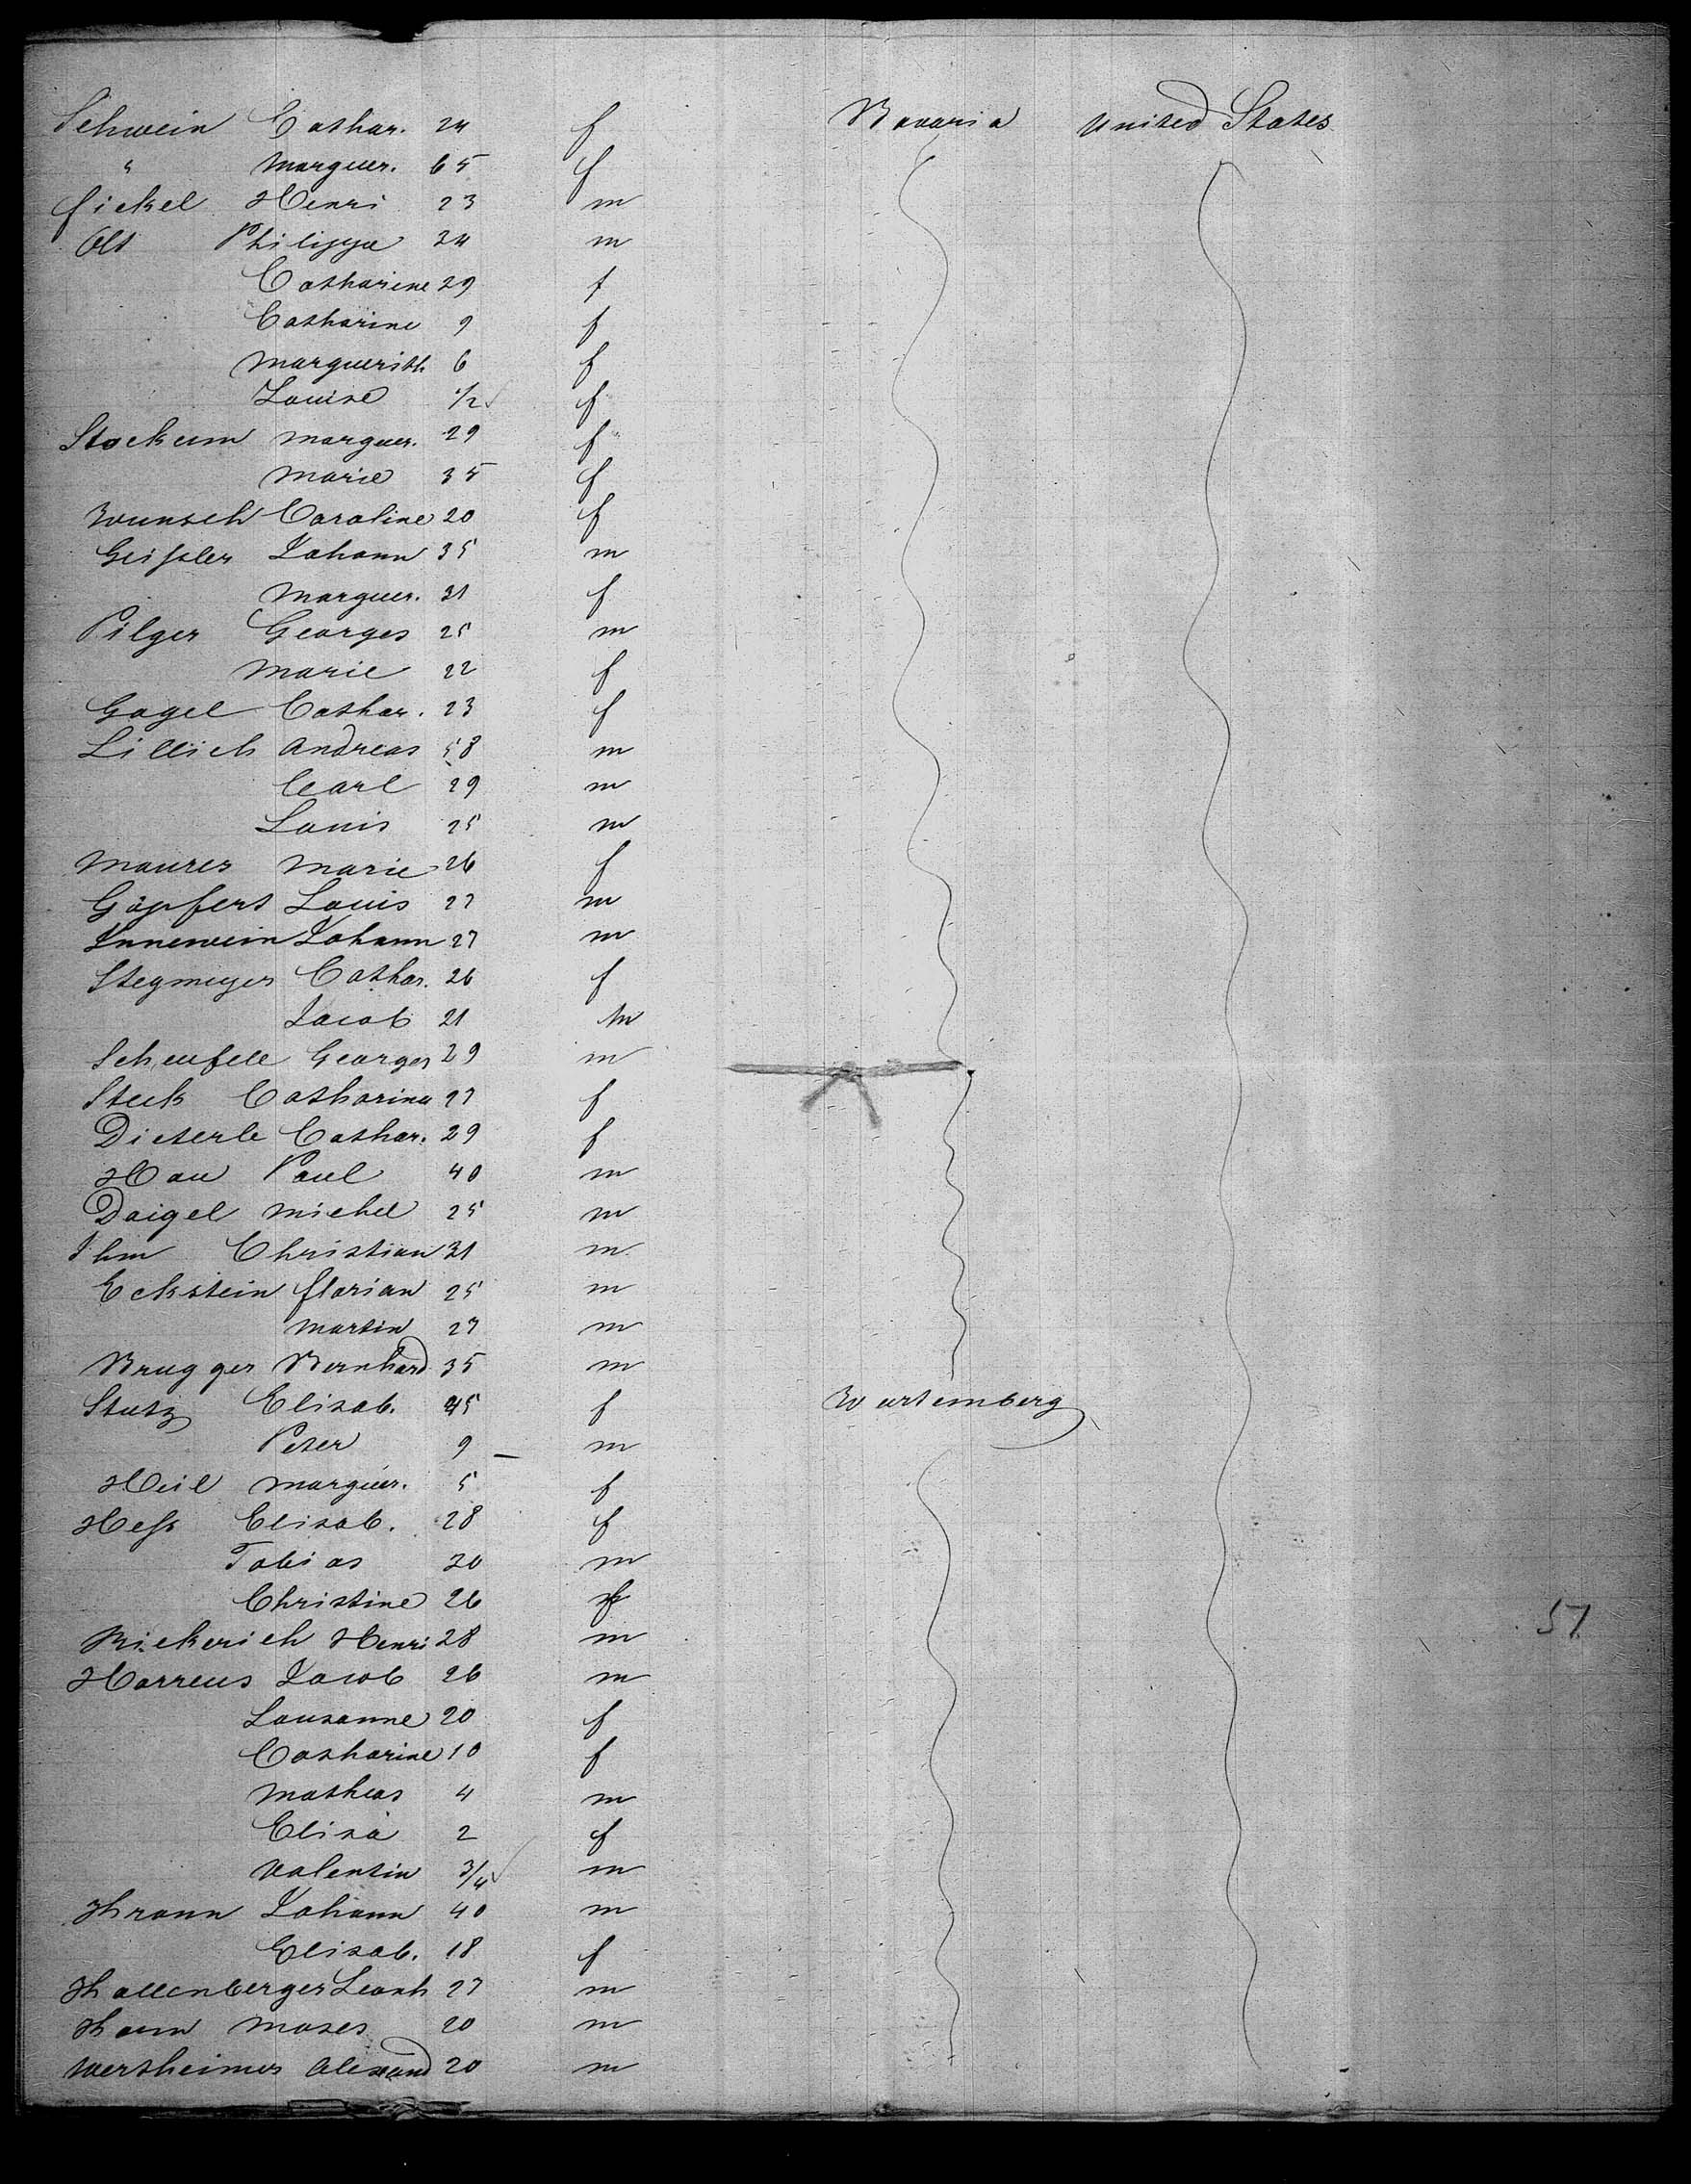 Schwein Cathar. 24 f Bavaria United States
" Marguer. 65 f
Fickel Henri 23 m
Olt Philippe 34 m
Catharine 29 f
Catharine 9 f
Marguerith 6 f
Louise 1/2 f
Stockum Marguer. 29 f
Marie 35 f
Wunsch Caroline 20 f
Geissler Johann 35 m
Marguer. 31 f
Pilger Georges 25 m
Marie 22 f
Gagel Cathar. 23 f
Lillich Andreas 58 m
Carl 29 m
Louis 25 m
Maurer Marie 26 f
Göpfert Louis 27 m
Innewein Johann 27 m
Stegmeyer Cathar. 26 f
Jacob 21 m
Scheufele Georges 29 m
Steck Catharina 27 f
Dieterle Cathar. 29 f
Hau Paul 40 m
Daigel Michel 25 m
Ihm Christian 31 m
Eckstein Florian 25 m
Martin 27 m
Brugger Bernhard 35 m
Stutz Elisab. 45 f Wurtemberg
Peter 9 — m
Heil Marguer. 5 f
Hess Elisab. 28 f
Tobias 30 m
Christine 26 f
Rickerich Henri 28 m
Harreus Jacob 26 m
Lousanne 20 f
Catharine 10 f
Mathias 4 m 
Elisa 2 f
Valentin 3/4 m
Johann 40 m
Elisab. 18 f
Hallenberger Leonh 27 m
Moses 20 m
Wertheimer Alexand 20 m
57